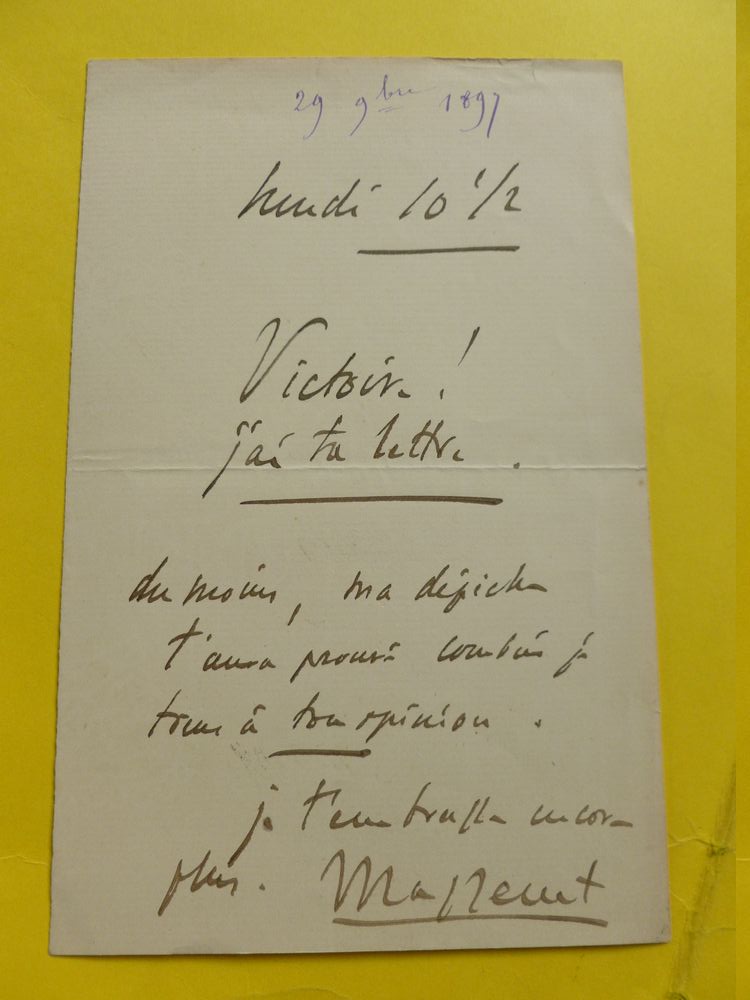 29 9bre 1897
lundi 10 1/2
Victoire !
j'ai ta lettre .
du moins, ma dépêche
t'aura prouvé combien je
tiens à ton opinion .
je t'embrasse encore
plus. Massenet